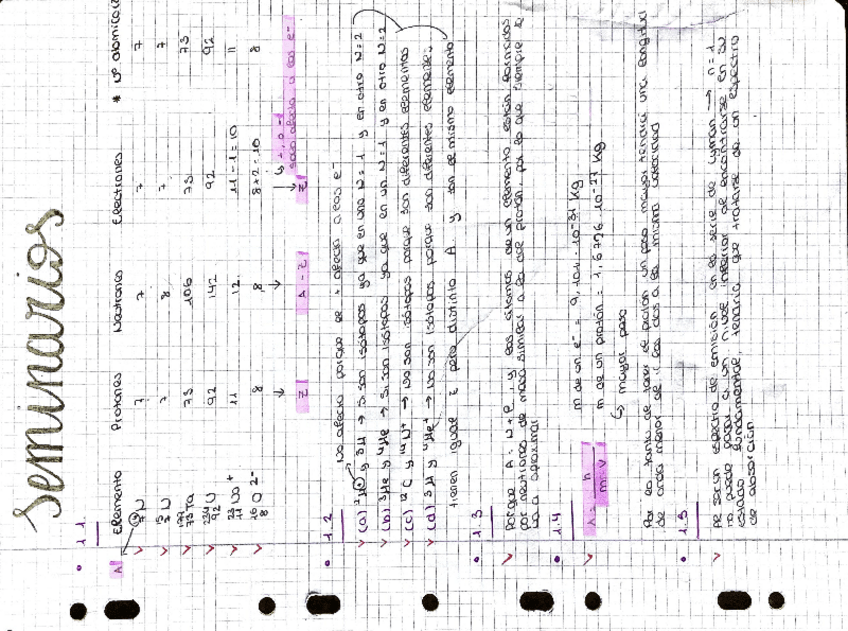 Seminarios
• 1.1
A
Elemento Protones Neutrones Electrones * Nº atómico
14 7 N 7 7 7 7
15 7 N 7 8 7 7
179 73 Ta 73 106 73 73
234 92 U 92 142 92 92
23 11 Na + 11 12 11-1=10 11
16 8 O 2- 8 8 8+2=10 8
↓ Z ↓ A-Z → Z
solo afecta a los e-
• 1.2 No afecta porque el + afecta a los e-
(a) 2H+ y 3H → Si son isótopos ya que en uno N=1 y en otro N=2
(b) 3He y 4He → Si son isótopos ya que en un N=1 y en otro N=2
(c) 12C y 14N+ → No son isótopos porque son diferentes elementos
(d) 3H y 4He+ → No son isótopos porque son diferentes elementos
tienen igual Z pero distinto A y son del mismo elemento
• 1.3
Porque A = N+P, y los átomos de un elemento están formados
por neutrones de masa similar a la del protón, por lo que siempre se
va a aproximar
• 1.4
λ = h / m·v
m de un e- = 9,101·10-31 kg
m de un protón = 1,6726·10-27 kg
↳ mayor masa
Por lo tanto al tener el protón un peso mayor tendrá una longitud
de onda menor si los dos a la misma velocidad
• 1.5
Al ser un espectro de emisión en la serie de Lyman → n=1
no puede pasar a un nivel inferior al encontrarse en su
estado fundamental, tendría que tratarse de un espectro
de absorción